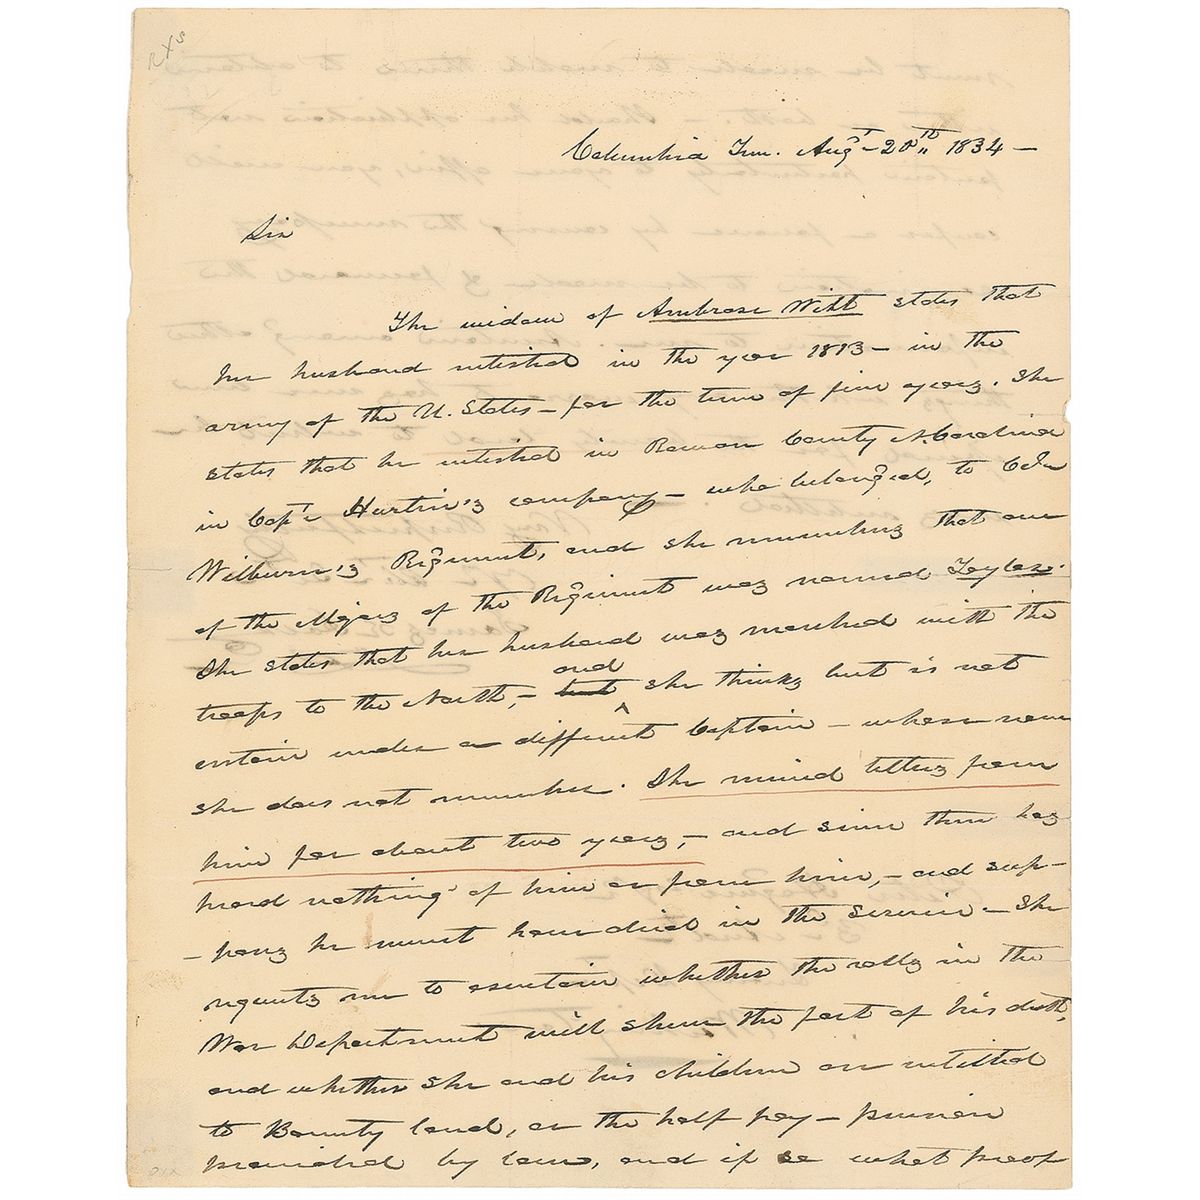 Columbia Ten. Augt 20th 1834 -
Sir
The widow of Ambrose Witt states that
her husband enlisted in the year 1813 - in the
army of the U. States - for the term of five years. She
states that he enlisted in Rowan County N. Carolina
in Capt. Hartin's company - who belonged, to Col
Wilburn's Regiment, and she remembers that one
of the Majors of the Regiment was named Taylor.
She states that her husband was marched with the
troops to the North, - but and she thinks but is not
certain under a different Captain - whose name
she does not remember. She received letters from
him for about two years, - and since then has
heard nothing of him or from him, - and sup-
- poses he must have died in the service - She
requests me to ascertain whether the rolls in the
War Department will shew the fact of his death,
and whether she and his children are entitled
to Bounty land, or the half pay - pension
provided by law, and if so what proof